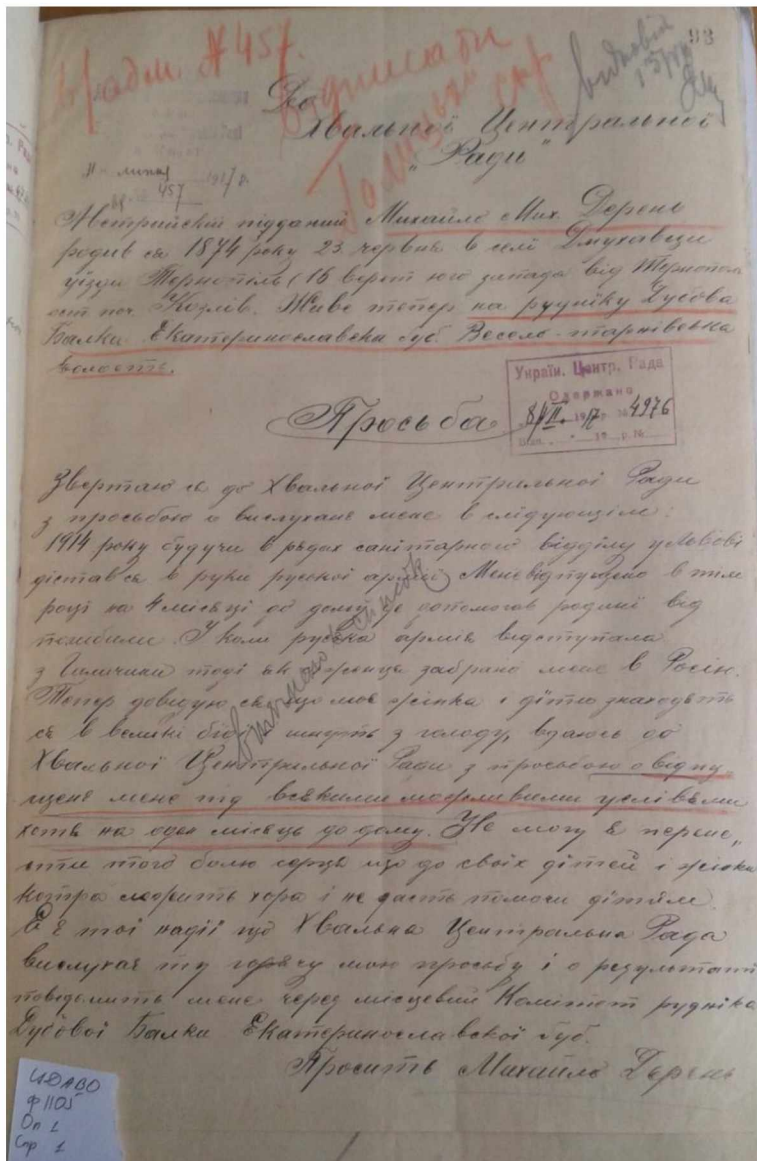 в радм. № 457.
відписати
Галицьк
93
відповів
До
Хвальної Центральної
"Ради"
11 липця 1917 р.
457
Австрийскій підданий Михайло Мих. Дерень
родив ся 1874 року 23 червня в селі Дмухавци
уїзду Тернопіль (16 верст юго запада від Тернополя
ост поч. Козлів. Живе тепер на рудніку Дубова
Балка Екатеринославска губ. Весело-тарнівська
волость.
Україн. Центр. Рада
Одержано
8/VII 1917 р. № 4976
Просьба
Звертаю ся до Хвальної Центральної Ради
з просьбою о вислуханє мене в слідующім:
1914 року будучи в рядах санітарного відділу у Львові
дістався в руки руської армії Мене відпущено в тім
році на 4 місяці до дому допомогав родині від
погибели. І коли руська армія відступала
з Галичини тоді як забрано мене в Росію.
Тепер довідую ся що моя жінка і діти знаходять
ся в великі біді з голоду, вдаюсь до
Хвальної Центральної Ради з просьбою о відпу
щенє мене під всякими можливими услівями
хоть на один місяць до дому. Не могу я перене„
сти того болю серця що до своїх дітей і жінки
котра лежить хора і не дасть помочи дітям.
Є я тої надії що Хвальна Центральна Рада
вислухає ту горячу мою просьбу і о результаті
повідомить мене через місцевий Комітет рудніка
Дубової Балки Екатеринославскої губ.
Просить Михайло Дерень
ЦДАВО
ф 1105
Оп 1
Спр 1